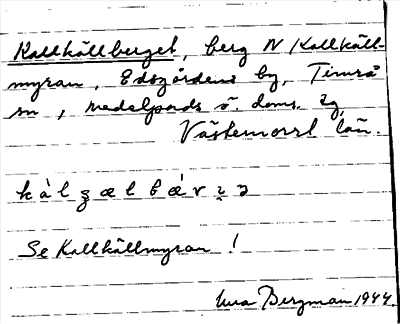 Kallkällberget, berg N Kallkäll-
myran, Edsgårdens by, Timrå
sn, Medelpads ö. doms. sg,
Västernorrl län.
Se Kallkällmyran!
Bergman 1944.